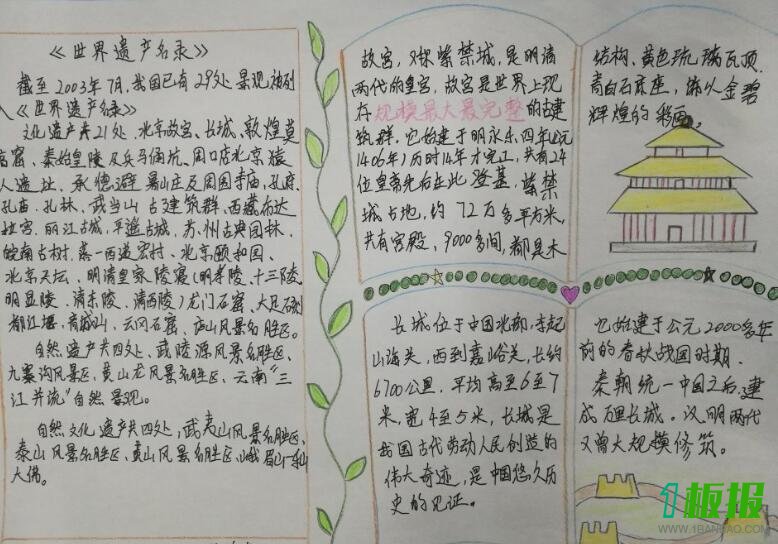 《世界遗产名录》
截至2003年7月,我国已有29处景观被列
入《世界遗产名录》
文化遗产共21处,北京故宫、长城、敦煌莫
高窟、秦始皇陵及兵马俑坑、周口店北京猿
人遗址、承德避暑山庄及周围寺庙,孔府、
孔庙、孔林、武当山古建筑群、西藏布达
拉宫、丽江古城、平遥古城、苏州古典园林、
皖南古村、
北京颐和园、
北京天坛、明清皇家陵寝(明孝陵、十三陵
明显陵、清东陵、清西陵)龙门石窟、大足石刻
都江堰、青城山、云冈石窟、庐山风景名胜区。
自然遗产共四处、武陵源风景名胜区、
九寨沟风景区、黄山龙风景名胜区、云南“三
江并流”自然景观。
自然文化遗产共四处,武夷山风景名胜区、
泰山风景名胜区、黄山风景名胜区、峨眉山—乐山
大佛。
故宫,又称紫禁城,是明清
两代的皇宫,故宫是世界上现
存规模最大最完整的古建
筑群。它始建于明永乐四年(公元
1406年)历时14年才完工,共有24
位皇帝先后在此登基,紫禁
城占地,约72万多平方米,
共有宫殿,9000多间,都是木
结构、黄色琉璃瓦顶、
青白石底座,饰以金碧
辉煌的彩画。
长城位于中国北部,东起
山海关,西到嘉峪关,长约
6700公里。平均高至6至7
米,宽4至5米,长城是
我国古代劳动人民创造的
伟大奇迹,是中国悠久历
史的见证。
它始建于公元2000多年
前的春秋战国时期.
秦朝统一中国之后,建
成万里长城。汉、明两代
又曾大规模修筑。
1板报
WWW.1BANBAO.COM